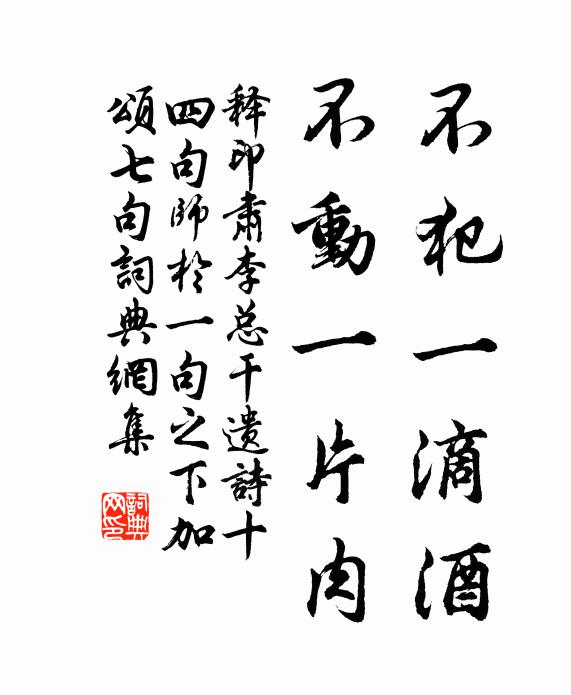 不犯一滴酒
不動一片肉
释印肅李总干遺詩十
四句師於一句之下加
頌七句詞典網集
詞典
网印